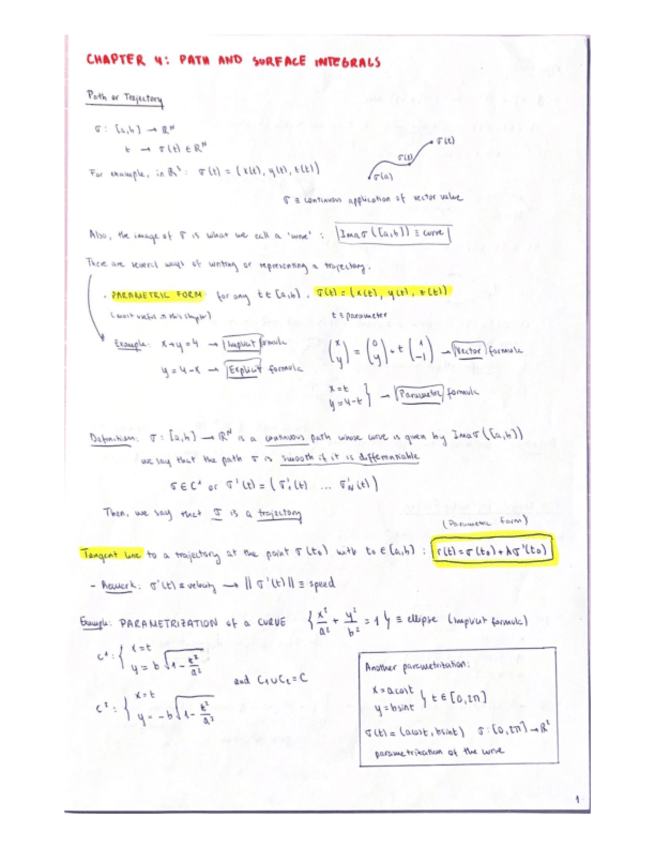 CHAPTER 4: PATH AND SURFACE INTEGRALS
Path or Trajectory
σ: [a,b] → ℝᴺ
t → σ(t) ∈ ℝᴺ
For example, in ℝ³: σ(t) = (x(t), y(t), z(t))
σ(a) σ(t) σ(t)
σ ≡ continuous application of vector value
Also, the image of σ is what we call a 'curve' : Imaσ([a,b]) ≡ curve
There are several ways of writing or representing a trajectory.
· PARAMETRIC FORM for any t ∈ [a,b], σ(t) = (x(t), y(t), z(t))
(most useful in this chapter) t ≡ parameter
Example: x+y=4 → Implicit formula (x y) = (0 4) + t (1 -1) → Vector formula
y = 4-x → Explicit formula
x=t
y=4-t } → Parametric formula
Definition: σ: [a,b] → ℝᴺ is a continuous path whose curve is given by Imaσ([a,b])
we say that the path σ is smooth if it is differentiable
σ ∈ C¹ or σ'(t) = (σ'₁(t) ... σ'ɴ(t))
Then, we say that σ is a trajectory
(Parametric form)
Tangent line to a trajectory at the point σ(t₀) with t₀ ∈ (a,b) : r(t) = σ(t₀) + λσ'(t₀)
- Remark: σ'(t) ≡ velocity → ||σ'(t)|| ≡ speed
Example: PARAMETRIZATION of a CURVE { x²/a² + y²/b² = 1 } ≡ ellipse (implicit formula)
C¹: { x=t
y = b√(1 - t²/a²)
and C₁∪C₂=C
C²: { x=t
y = -b√(1 - t²/a²)
Another parametrization:
x = a cost
y = b sint } t ∈ [0,2π]
σ(t) = (acost, bsint) σ: [0,2π] → ℝ²
parametrization of the curve
1